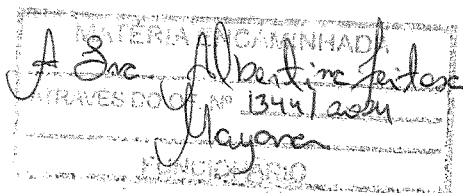 MATÉRIA ENCAMINHADA
A Sra. Albertina Feitosa
ATRAVÉS DO OF. Nº 1344/2021
Mayara
FUNCIONÁRIO